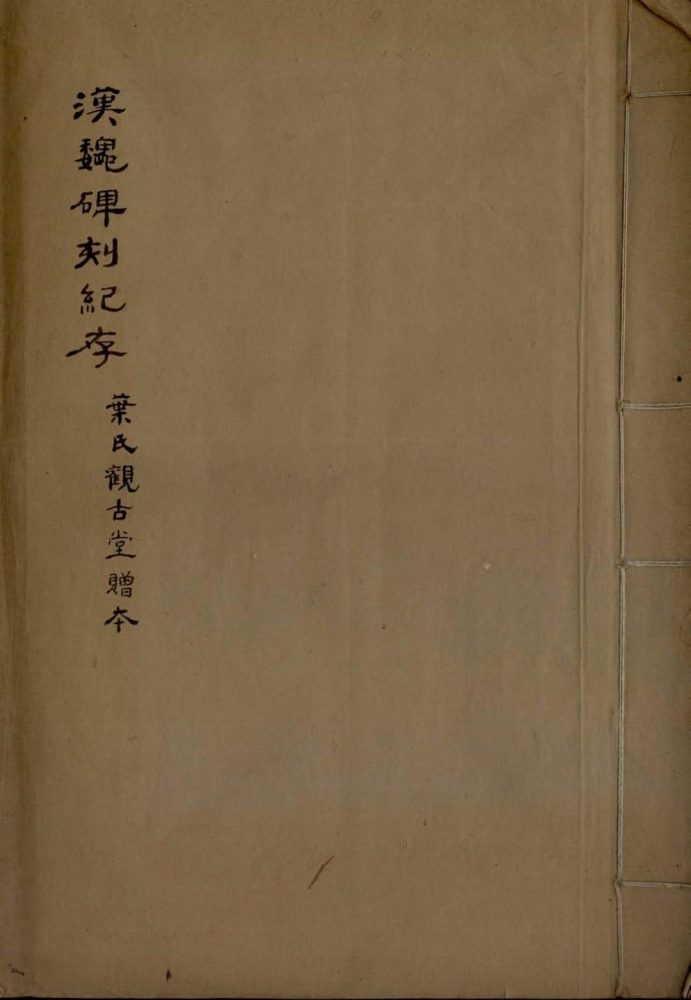 漢魏碑刻紀存
葉氏觀古堂贈本